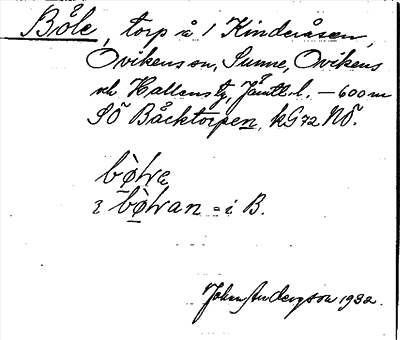 Böle, torp å 1 Kinderåsen,
Ovikens sn, Sunne, Ovikens
och Hallens tg, Jämtl. l. – 600 m
SÖ Båcktorpen, kG 72 NÖ.
i = i B.
Johan Anderzson 1932.